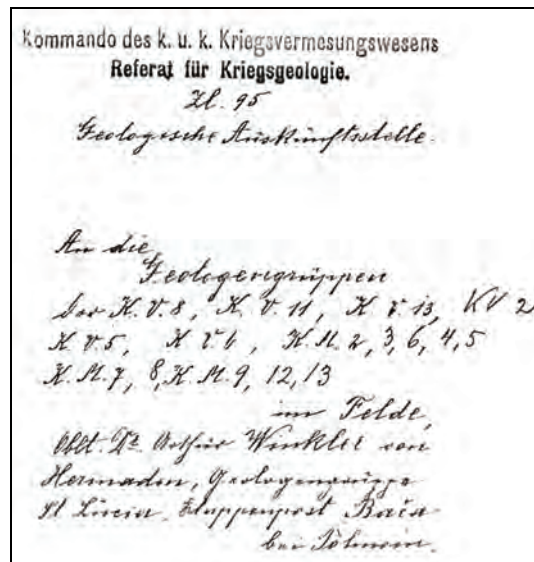 Kommando des k. u. k. Kriegsvermesungswesens
Referat für Kriegsgeologie.
Zl. 95
Geologische Auskunftsstelle.
An die
Geologengruppen
der K. V. 8, K. V. 11, K. V. 13, KV 2
K. V. 5, K. V. 6, K. M. 2, 3, 6, 4, 5
K. M. 7, 8, K. M. 9, 12, 13
im Felde,
Oblt. Dr. Arthur Winkler von
Hermaden, Geologengruppe
St Lucia Etappenpost Bača
bei Tolmein.